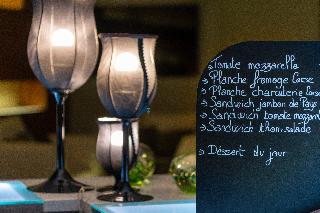 Tomate mozzarella
Planche fromage Corse
Planche charcuterie Corse
Sandwich jambon de Pays
Sandwich tomate mozzare
Sandwich thon salade
Dessert du jour